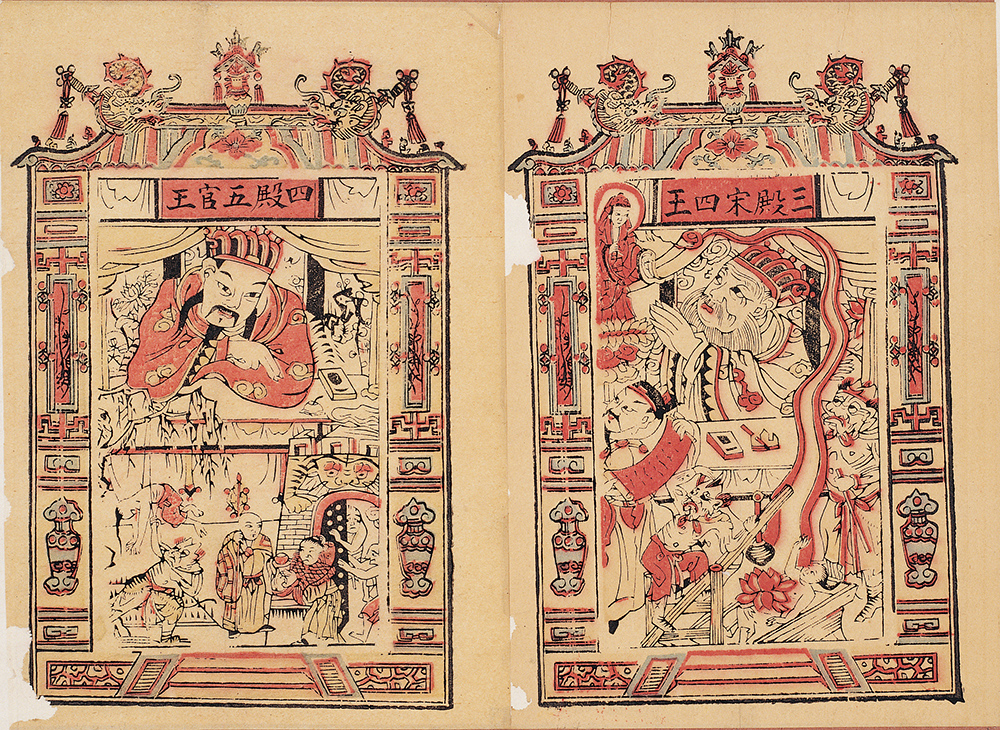 三殿宋四王
四殿五官王